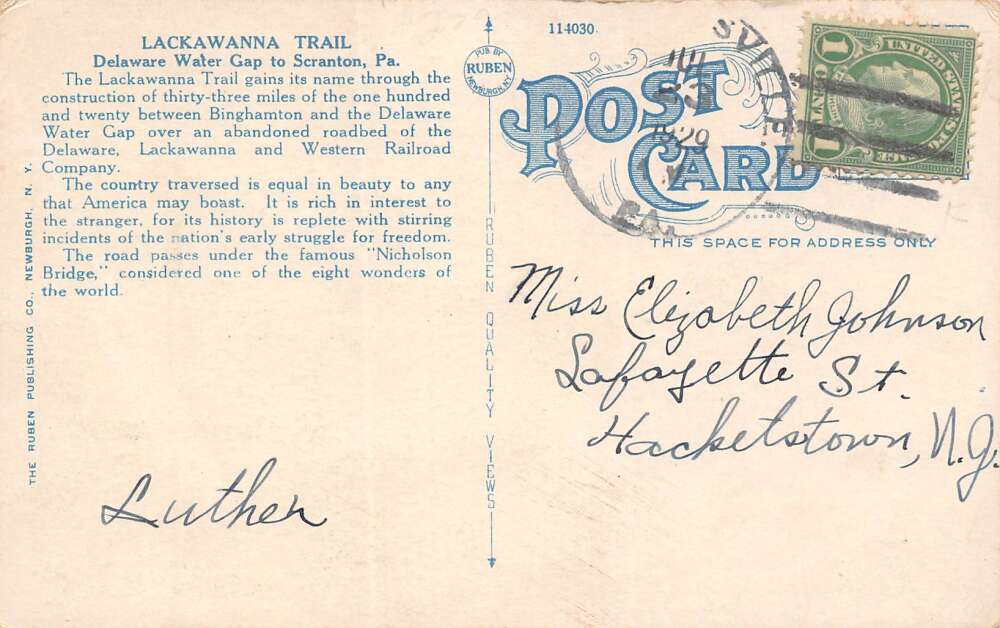 LACKAWANNA TRAIL
Delaware Water Gap to Scranton, Pa.
The Lackawanna Trail gains its name through the
construction of thirty-three miles of the one hundred
and twenty between Binghamton and the Delaware
Water Gap over an abandoned roadbed of the
Delaware, Lackawanna and Western Railroad
Company.
The country traversed is equal in beauty to any
that America may boast. It is rich in interest to
the stranger, for its history is replete with stirring
incidents of the nation's early struggle for freedom.
The road passes under the famous "Nicholson
Bridge," considered one of the eight wonders of
the world.
THE RUBEN PUBLISHING CO., NEWBURGH, N. Y.
Luther
PUB. BY
RUBEN
NEWBURGH, N.Y.
RUBEN QUALITY VIEWS
114030
POST
CARD
SVILLE
JUL
23
1929
PA.
1
1
THIS SPACE FOR ADDRESS ONLY
Miss Elizabeth Johnson
Lafayette St.
Hacketstown, N.J.